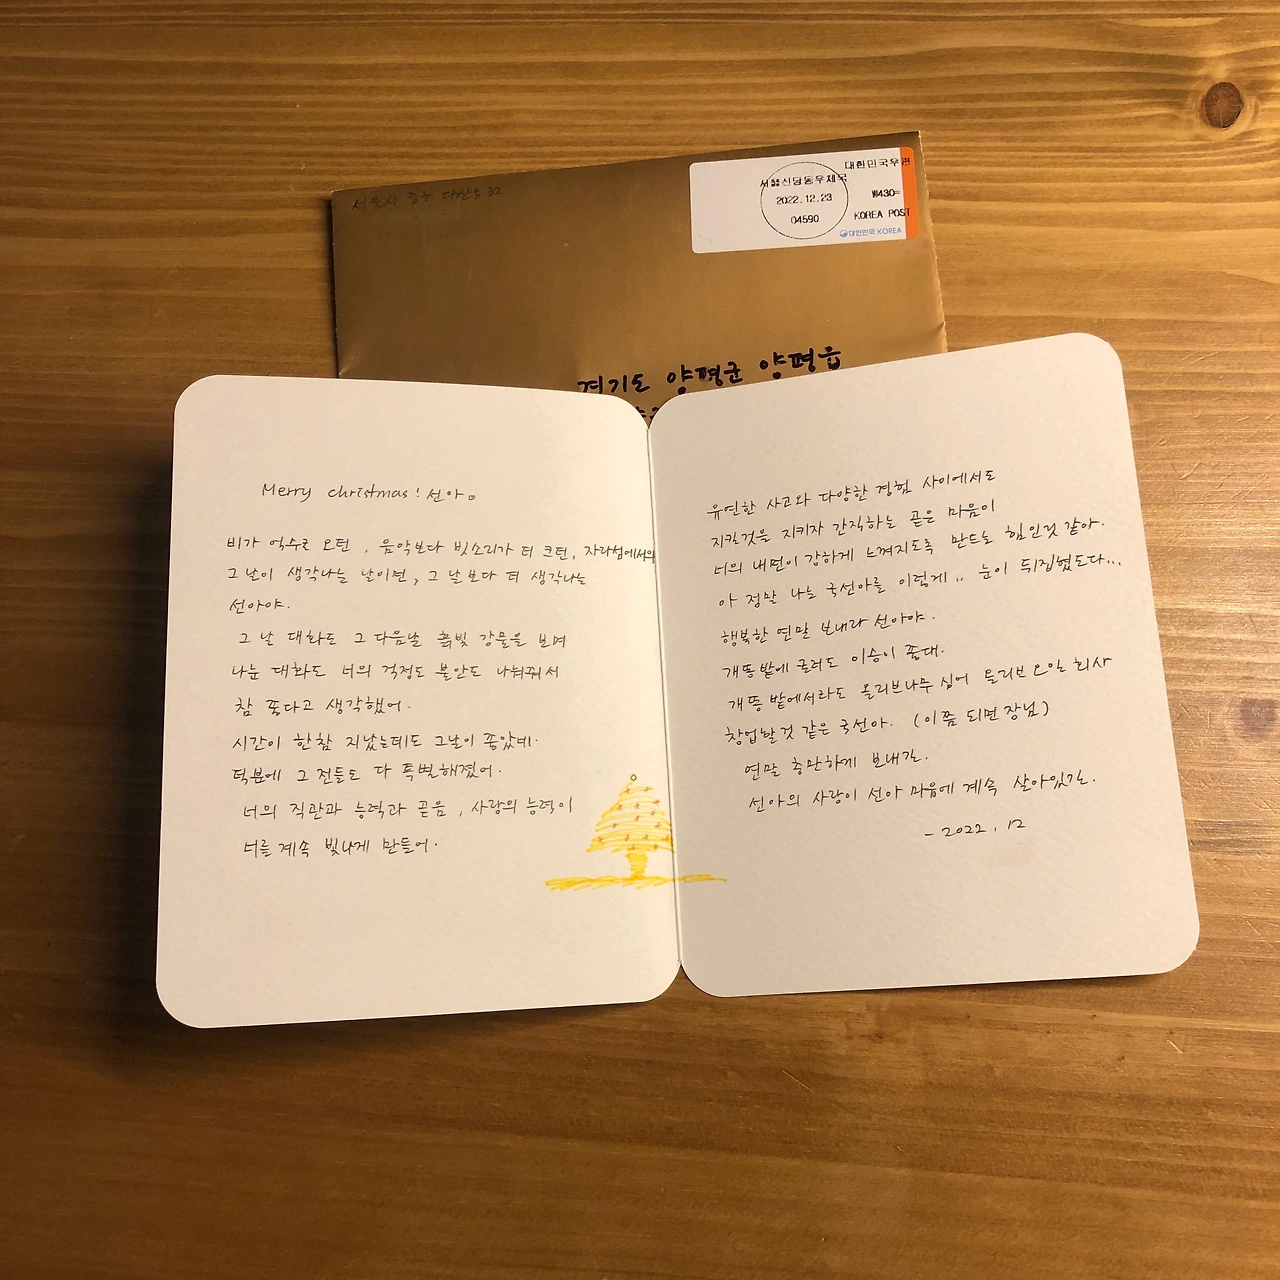 서울시 중구 다산로 32
대한민국우편
서울신당동우체국
2022.12.23
₩430=
04590
KOREA POST
대한민국 KOREA
경기도 양평군 양평읍
Merry christmas! 선아。
비가 억수로 오던, 음악보다 빗소리가 더 크던, 자라섬에서의
그날이 생각나는 날이면, 그 날보다 더 생각나는
선아야.
그 날 대화도 그 다음날 흙빛 강물을 보며
나눈 대화도 너의 걱정도 불안도 나눠줘서
참 좋다고 생각했어.
시간이 한참 지났는데도 그날이 좋았네.
덕분에 그 전들도 다 특별해졌어.
너의 직관과 능력과 곧음, 사랑의 능력이
너를 계속 빛나게 만들어.
유연한 사고와 다양한 경험 사이에서도
지킬것을 지키자 간직하는 곧은 마음이
너의 내면이 강하게 느껴지도록 만드는 힘인것 같아.
아 정말 나는 국선아를 이렇게.. 눈이 뒤집혔도다...
행복한 연말 보내라 선아야.
개똥밭에 굴러도 이승이 좋대.
개똥 밭에서라도 올리브나무 심어 올리브 오일 회사
창업할것 같은 국선아. (이쯤 되면 장님)
연말 충만하게 보내길.
선아의 사랑이 선아 마음에 계속 살아있길.
- 2022. 12